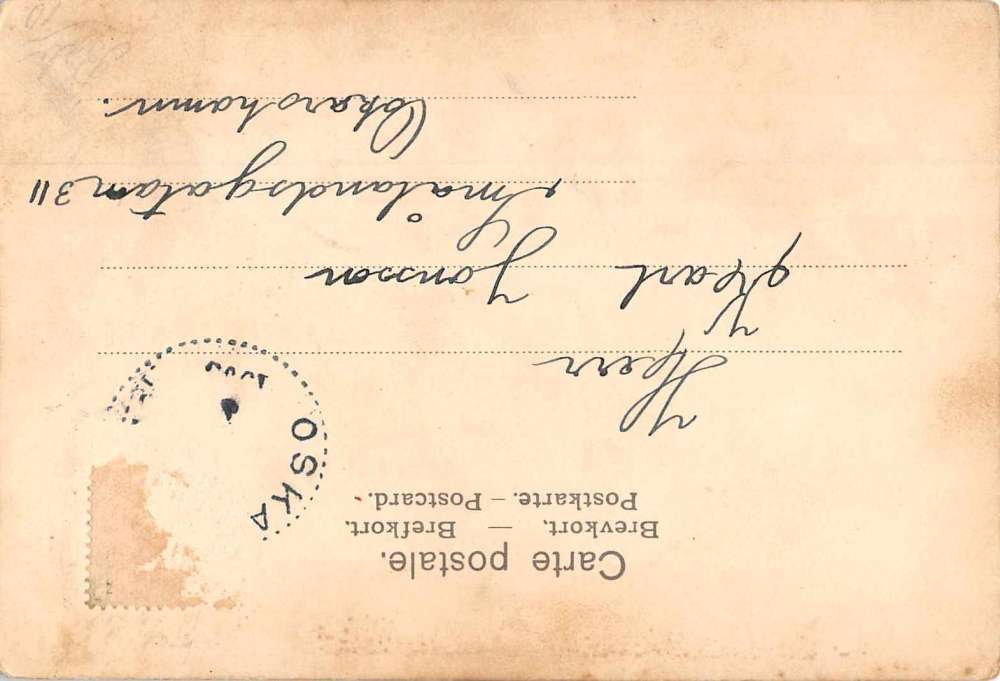 Carte postale.
Brevkort. — Brefkort.
Postkarte. — Postcard.
OSKA
Herr
Karl Jonsson
Smålandsgatan 311
Oskarshamn.